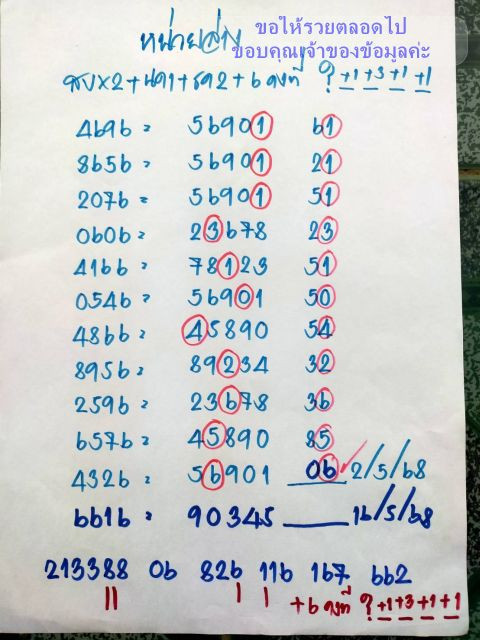 ขอให้รวยตลอดไป
หน่วยล่าง
ขอบคุณเจ้าของข้อมูลค่ะ
สบx2+นด1+รด2+6คงที่ ? +1+3+1+1
4696= 56901 61
8656= 56901 21
2076= 56901 51
0606= 23678 23
4166= 78123 51
0546= 56901 50
4866= 45890 54
8956= 89234 32
2596= 23678 36
6576= 45890 85
4326= 56901 06 2/5/68
6616= 90345 ___ 16/5/68
213388 06 826 116 167 662
+6คงที่ ? +1+3+1+1